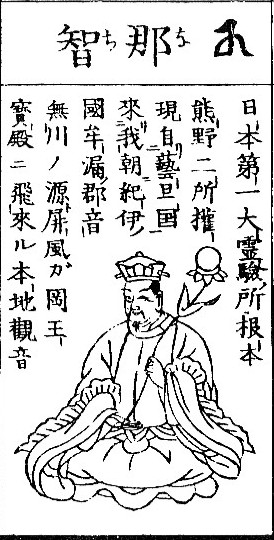 那智
なち
日本第一大靈驗所根本
熊野二所權
現自藝旦国
來我朝紀伊
國牟漏郡音
無川ノ源屏風カ岡王
寳殿ニ飛來ル本地觀音